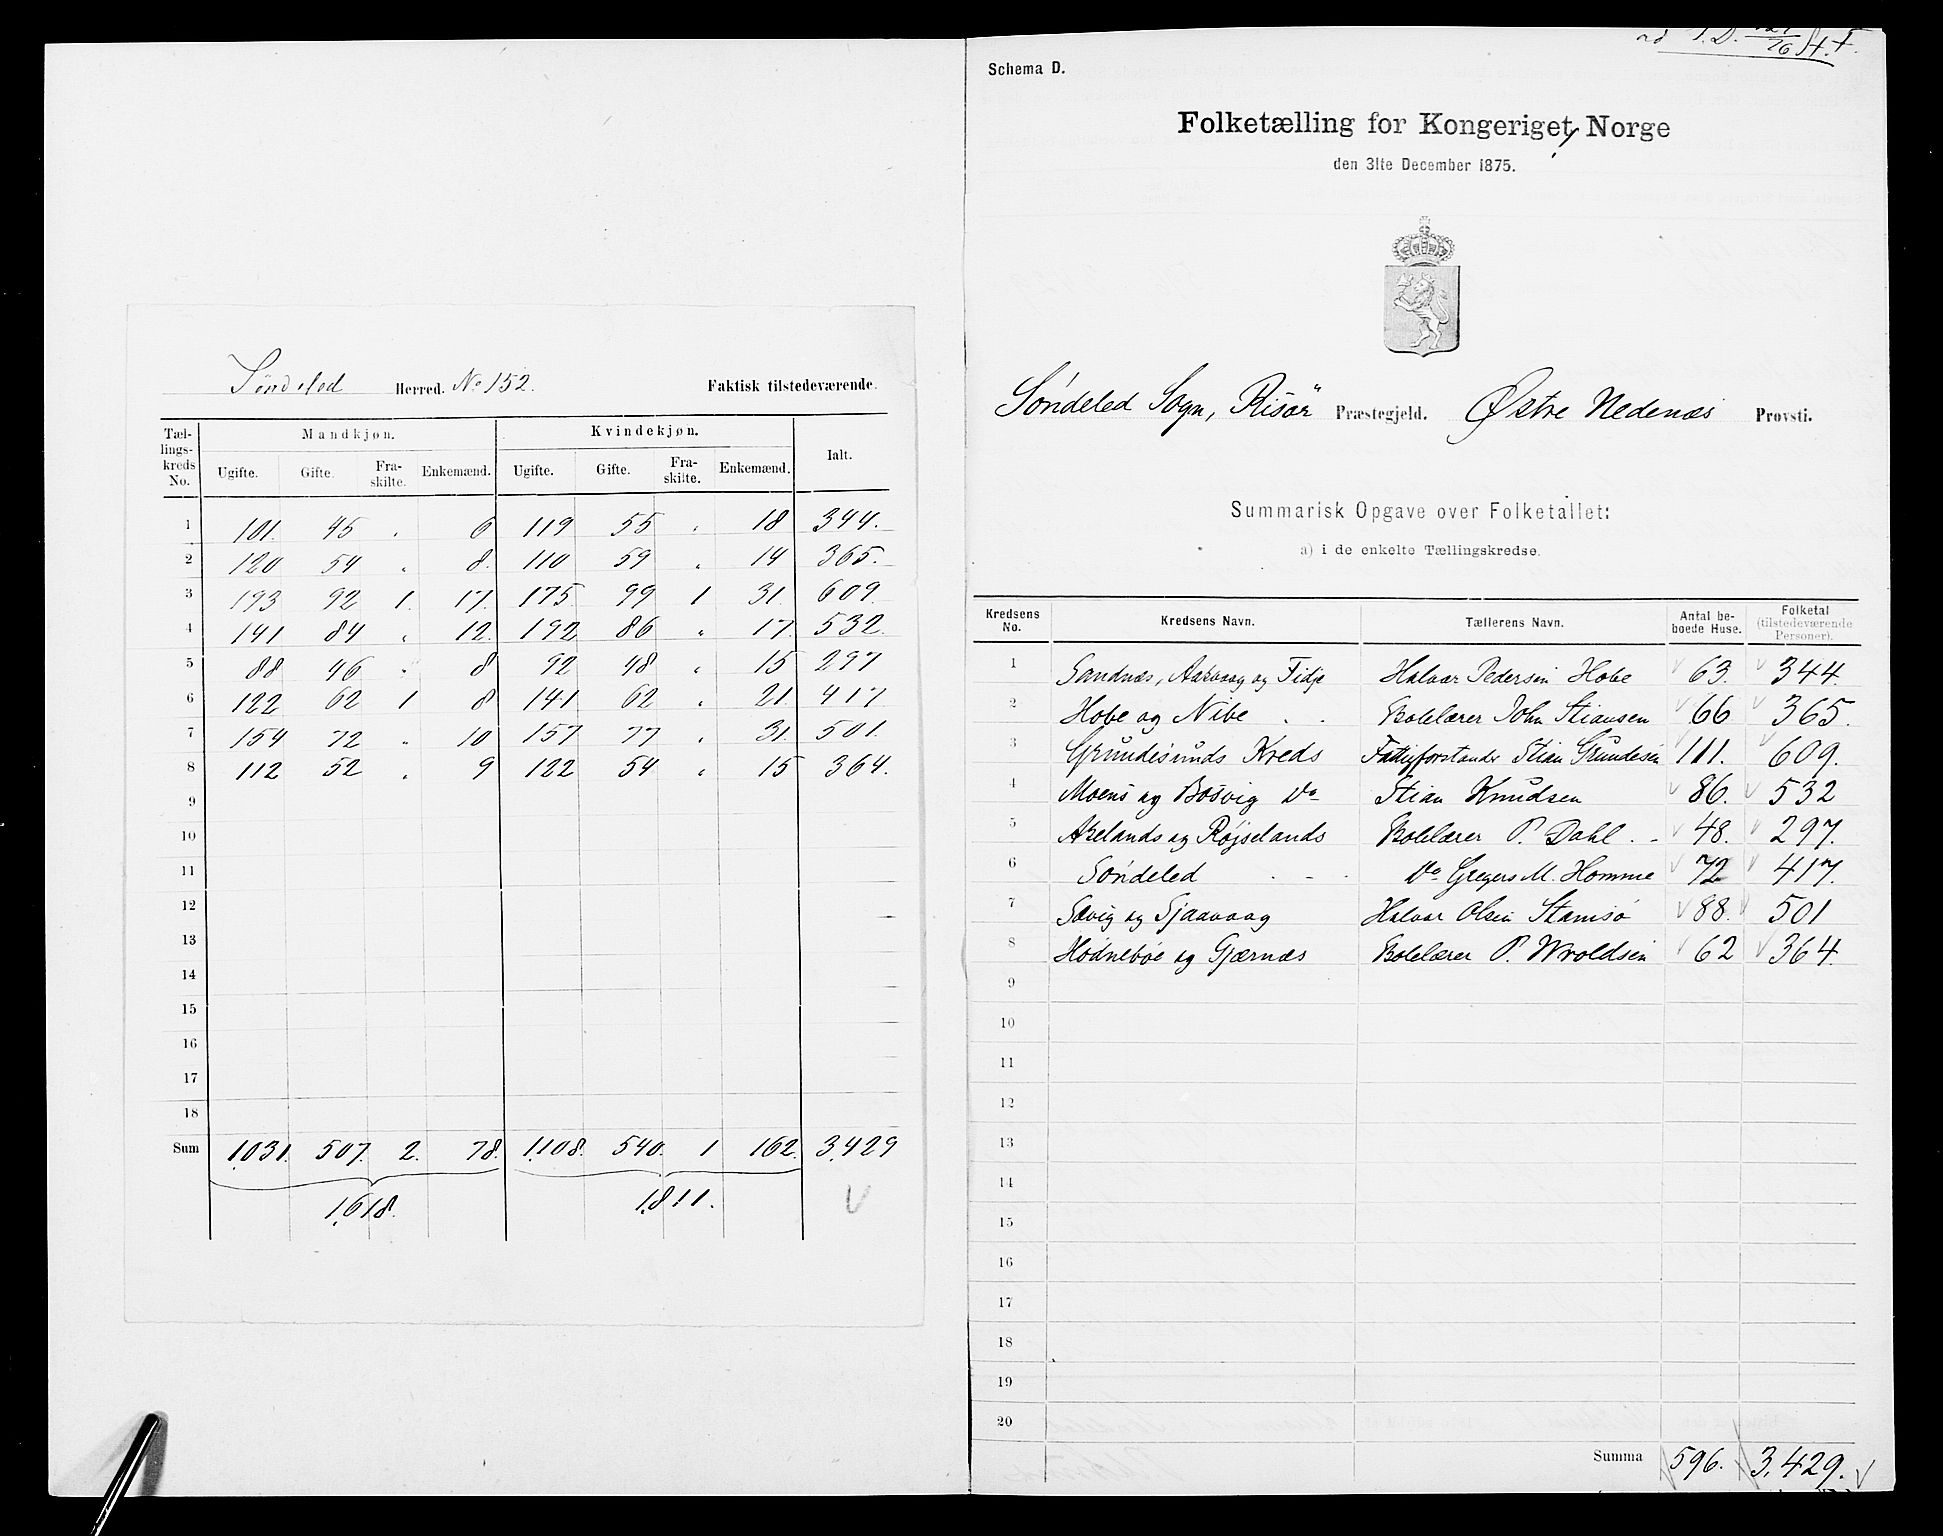 Søndeled Herred. No 152. Faktisk tilstedeværende.
Tællingskreds No. Mandkjøn. Kvindekjøn. Ialt.
Ugifte. Gifte. Fraskilte. Enkemænd. Ugifte. Gifte. Fraskilte. Enkemænd.
1 101. 45 „ 6 119 55 „ 18 344.
2 120 54 „ 8. 110 59 „ 14 365.
3 193 92 1. 17. 175 99 1 31. 609.
4 141 84 „ 12. 192 86 „ 17. 532.
5 88 46 „ 8 92 48 „ 15 297
6 122 62 1 8 141 62 „ 21. 417
7 154 72 „ 10 157 77 „ 31. 501.
8 112 52 „ 9 122 54 „ 15 364.
9
10
11
12
13
14
15
16
17
18
Sum 1,031. 507. 2. 78. 1,108. 540. 1 162. 3,429
1,618. 1,811.
ad J.D.
Schema D.
Folketælling for Kongeriget Norge
den 31te December 1875.
Søndeled Sogn, Risør Præstegjeld. Østre Nedenæs Provsti.
Summarisk Opgave over Folketallet:
a) i de enkelte Tællingskredse.
Kredsens No. Kredsens Navn. Tællerens Navn. Antal beboede Huse. Folketal (tilstedeværende Personer).
1 Sandnæs, Aakvaag og Fidje Halvor Pedersen Hobe 63. 344.
2 Hobe og Nibe . . Skolelærer John Stiansen 66 365.
3 Grundesunds Kreds Fattigforstander Stian Grundesen 111. 609.
4 Moens og Bosvig Do Stian Knudsen 86. 532
5 Akelands og Røjselands Skolelærer P. Dahl . - 48. 297.
6 Søndeled - - - Do Gregers M. Homme 72 417.
7 Sævig og Sjaavaag Halvor Olsen Stamsø 88. 501
8 Hødnebøe og Gjærnæs Skolelærer P. Wroldsen 62 364.
9
10
11
12
13
14
15
16
17
18
19
20
Summa 596. 3,429.